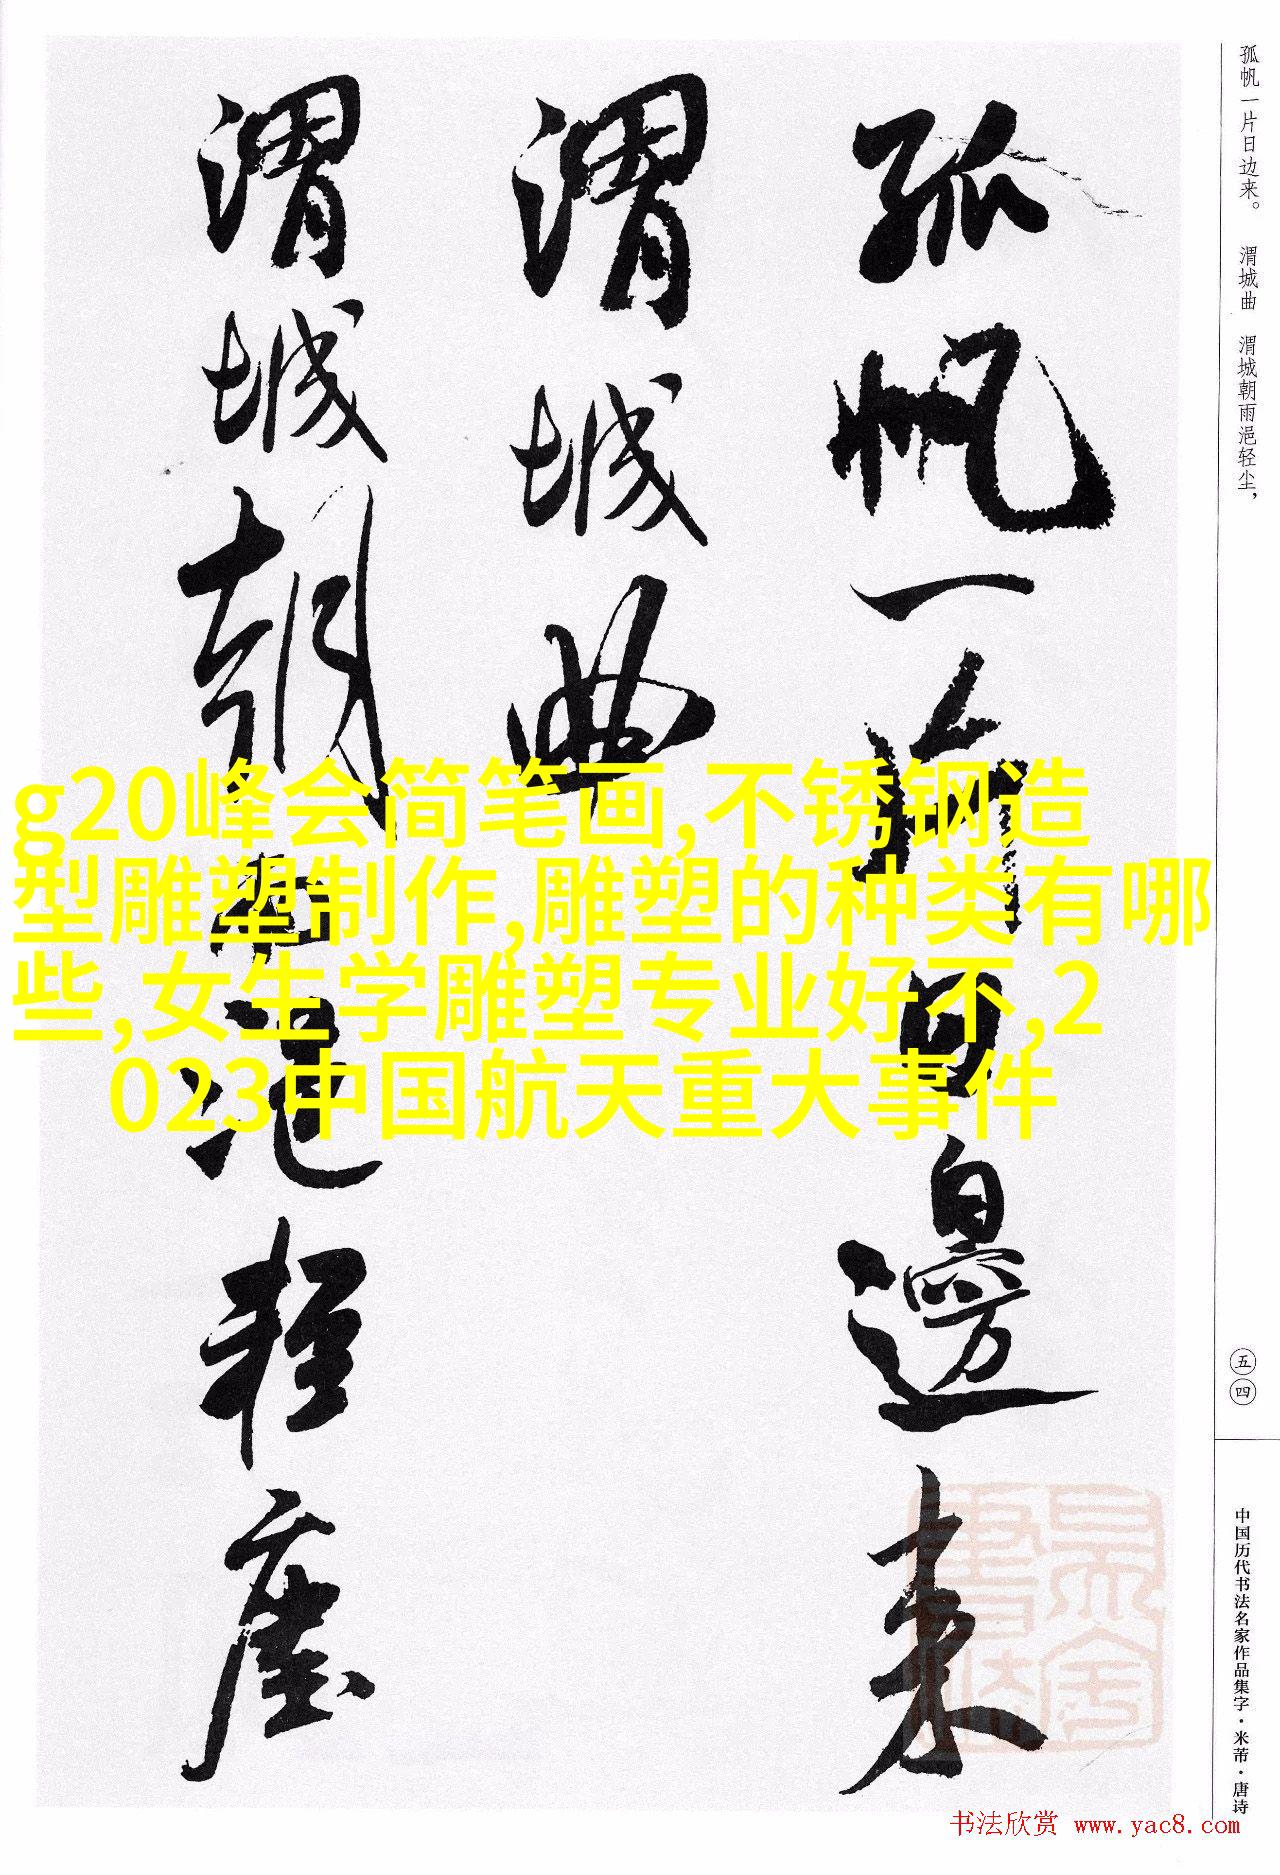 孤帆一片日邊来
渭城曲
渭城朝雨浥輕塵
孤帆一片日边来。 渭城曲 渭城朝雨浥轻尘，
五四
中国历代书法名家作品集字·米芾·唐诗
g20峰会简笔画,不锈钢造
型雕塑制作,雕塑的种类有哪
些,女生学雕塑专业好不,2
023中国航天重大事件
书法欣赏 www.yac8.com